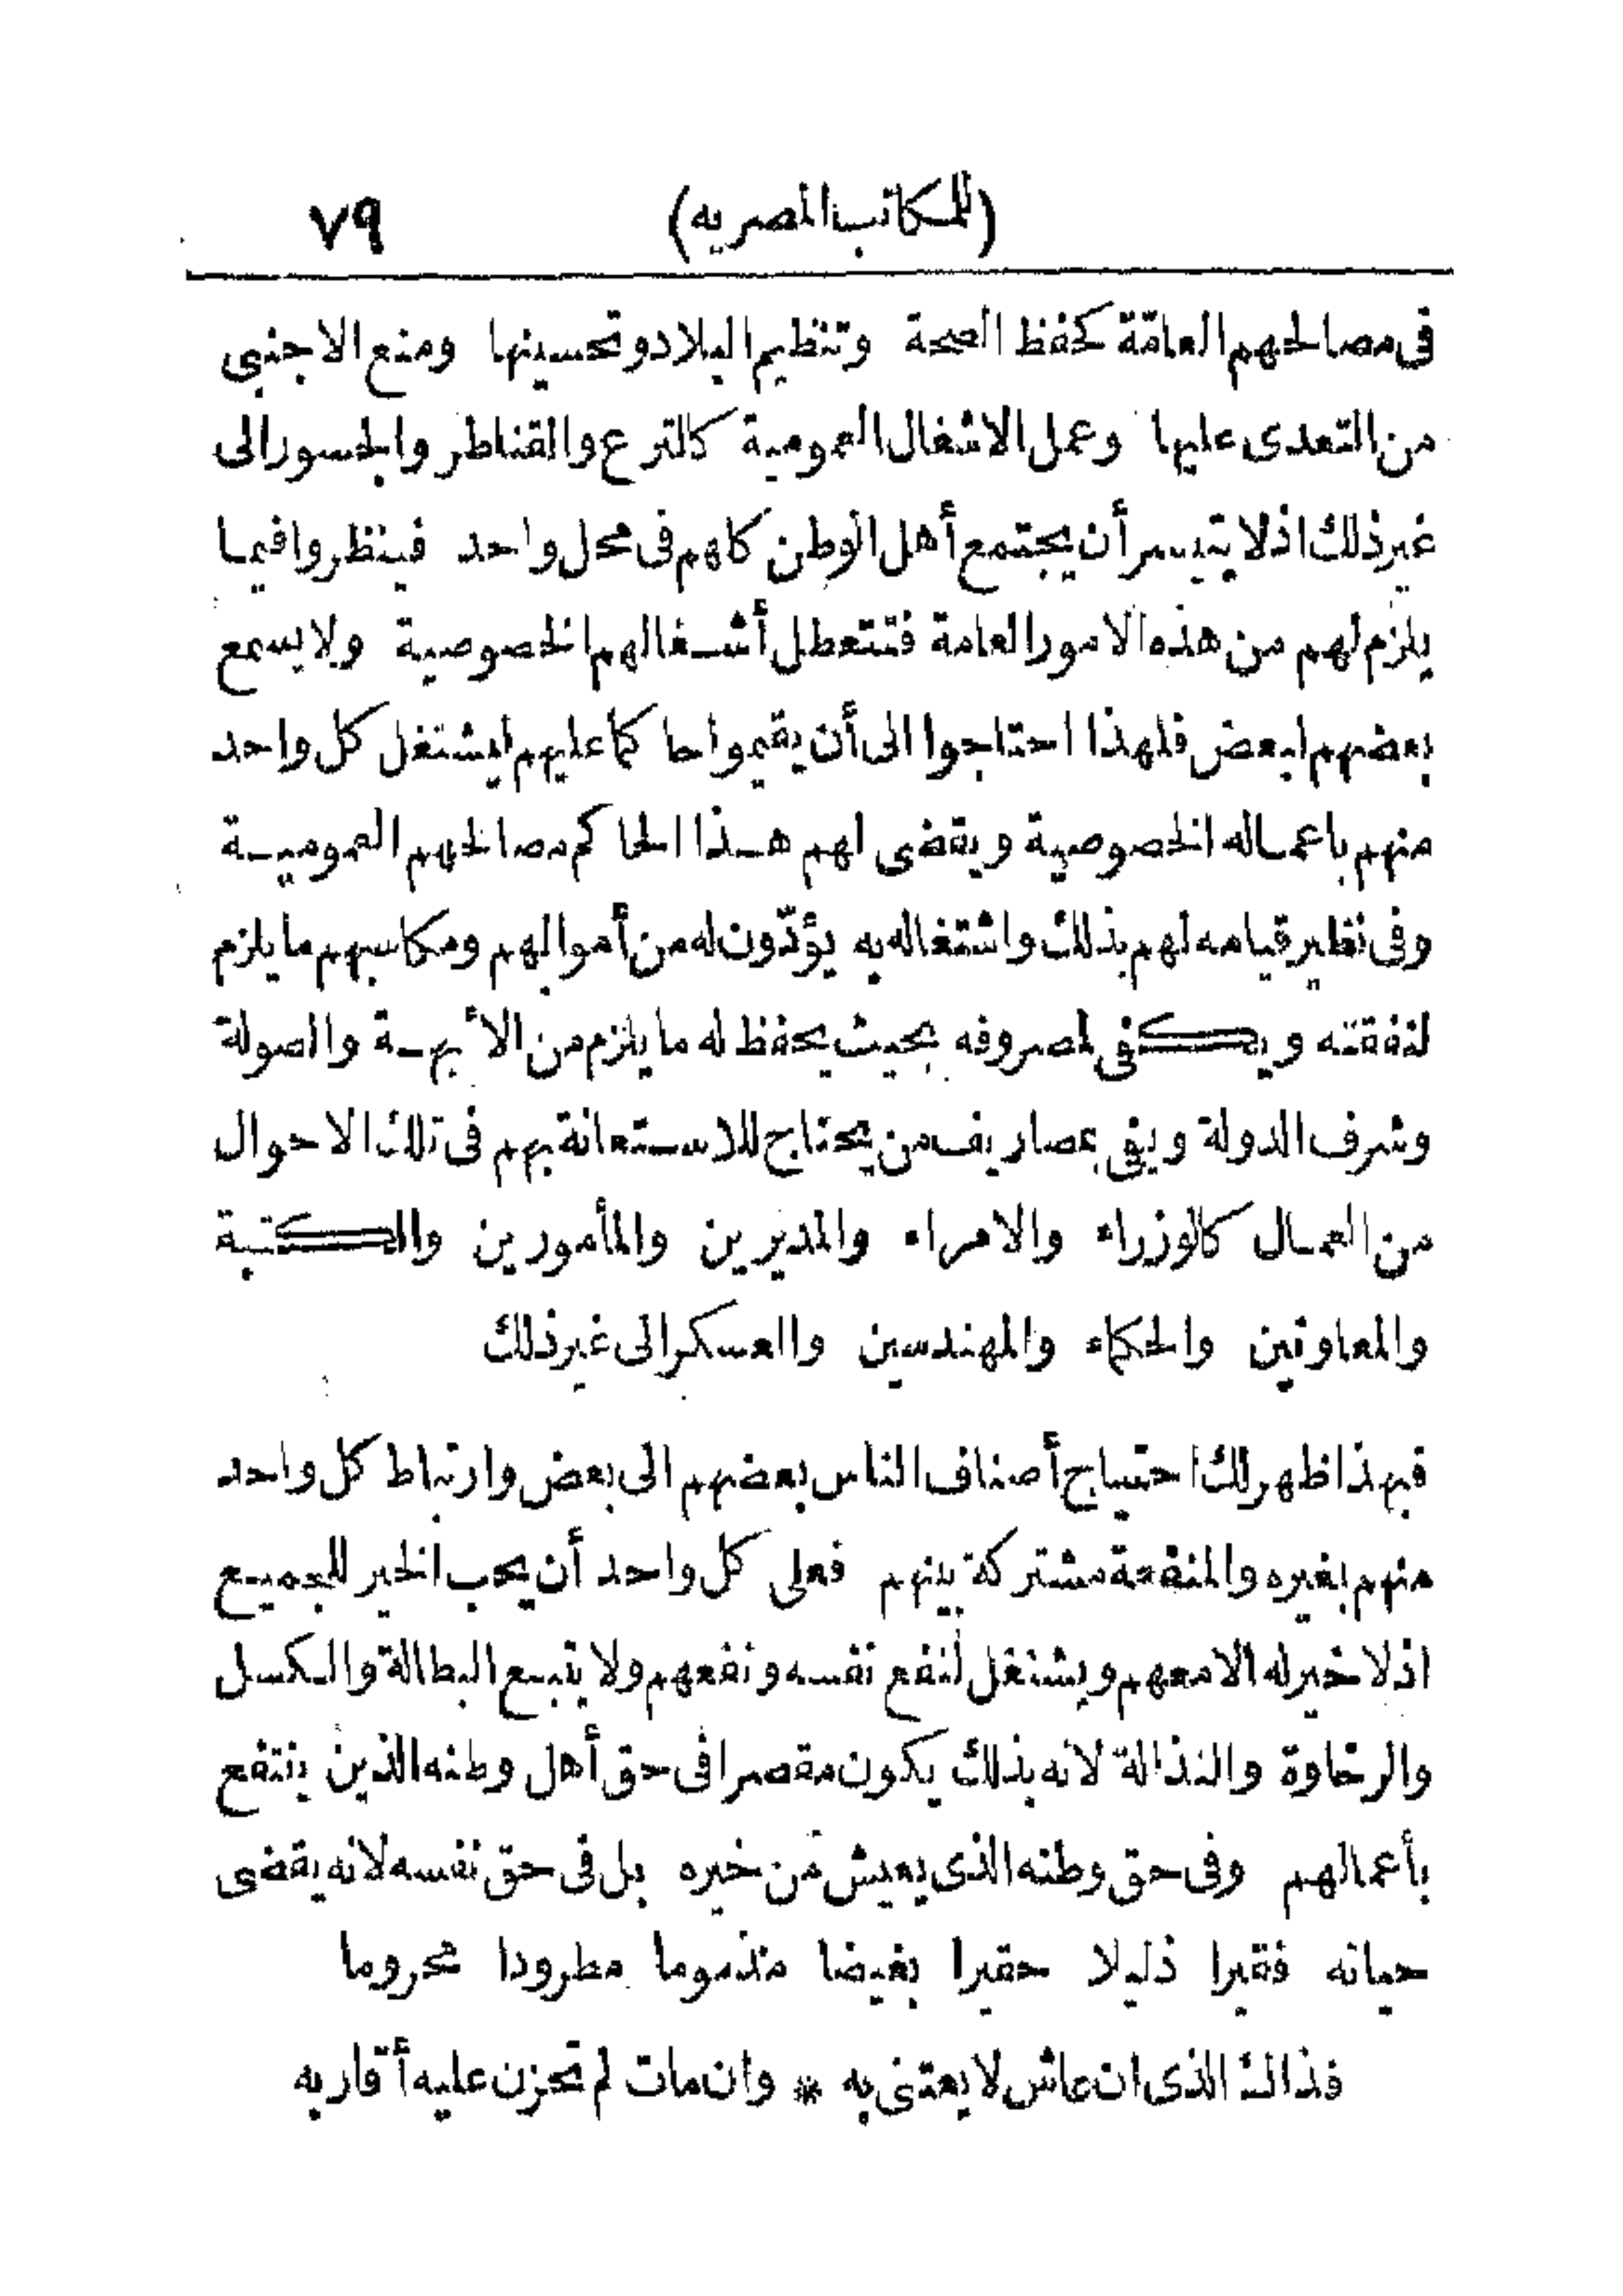 (للمكاتب المصريه) ٧٩
فى مصالحهم العامّة كحفظ الصحة وتنظيم البلاد وتحسينها ومنع الاجنبى
من التعدى عليها وعمل الاشغال العمومية كالترع والقناطر والجسور الى
غير ذلك اذ لا يتيسر أن يجتمع أهل الوطن كلهم فى محل واحد فينظروا فيما
يلزم لهم من هذه الامور العامة فتتعطل أشغالهم الخصوصية ولا يسمع
بعضهم لبعض فلهذا احتاجوا الى أن يقيموا حاكما عليهم ليشتغل كل واحد
منهم باعماله الخصوصية ويقضى لهم هذا الحاكم مصالحهم العمومية
وفى نظير قيامه لهم بذلك واشتغاله به يؤدّون له من أموالهم ومكاسبهم ما يلزم
لنفقته ويكفى لمصروفه بحيث يحفظ له ما يلزم من الأبهة والصولة
وشرف الدولة ويفى بمصاريف من يحتاج للاستعانة بهم فى تلك الاحوال
من العمال كالوزراء والامراء والمديرين والمأمورين والكتبة
والمعاونين والحكماء والمهندسين والعسكر الى غير ذلك
فبهذا ظهر لك احتياج أصناف الناس بعضهم الى بعض وارتباط كل واحد
منهم بغيره والمنفعة مشتركة بينهم فعلى كل واحد أن يحب الخير للجميع
اذ لا خير له الا معهم ويشتغل لنفع نفسه ونفعهم ولا يتبع البطالة والكسل
والرخاوة والنذالة لانه بذلك يكون مقصرا فى حق أهل وطنه الذين ينتفع
بأعمالهم وفى حق وطنه الذى يعيش من خيره بل فى حق نفسه لانه يقضى
حياته فقيرا ذليلا حقيرا بغيضا مذموما مطرودا محروما
فذاك الذى ان عاش لا يعتنى به * وان مات لم تحزن عليه أقاربه